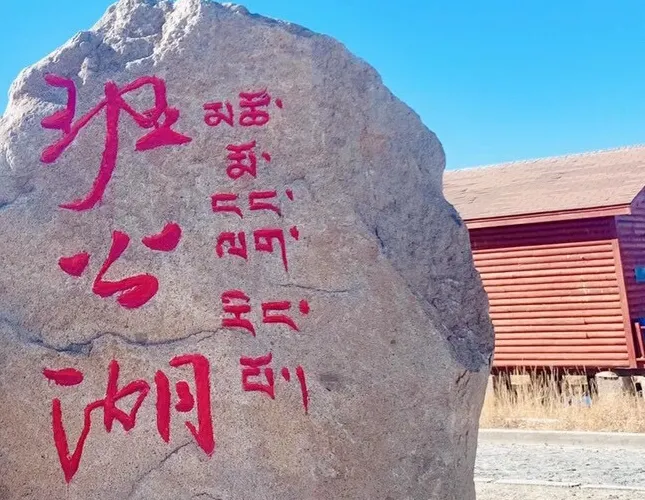 班公湖
མཚོ་
མོ་
ངང་
ལག་
རིང་
པོ།